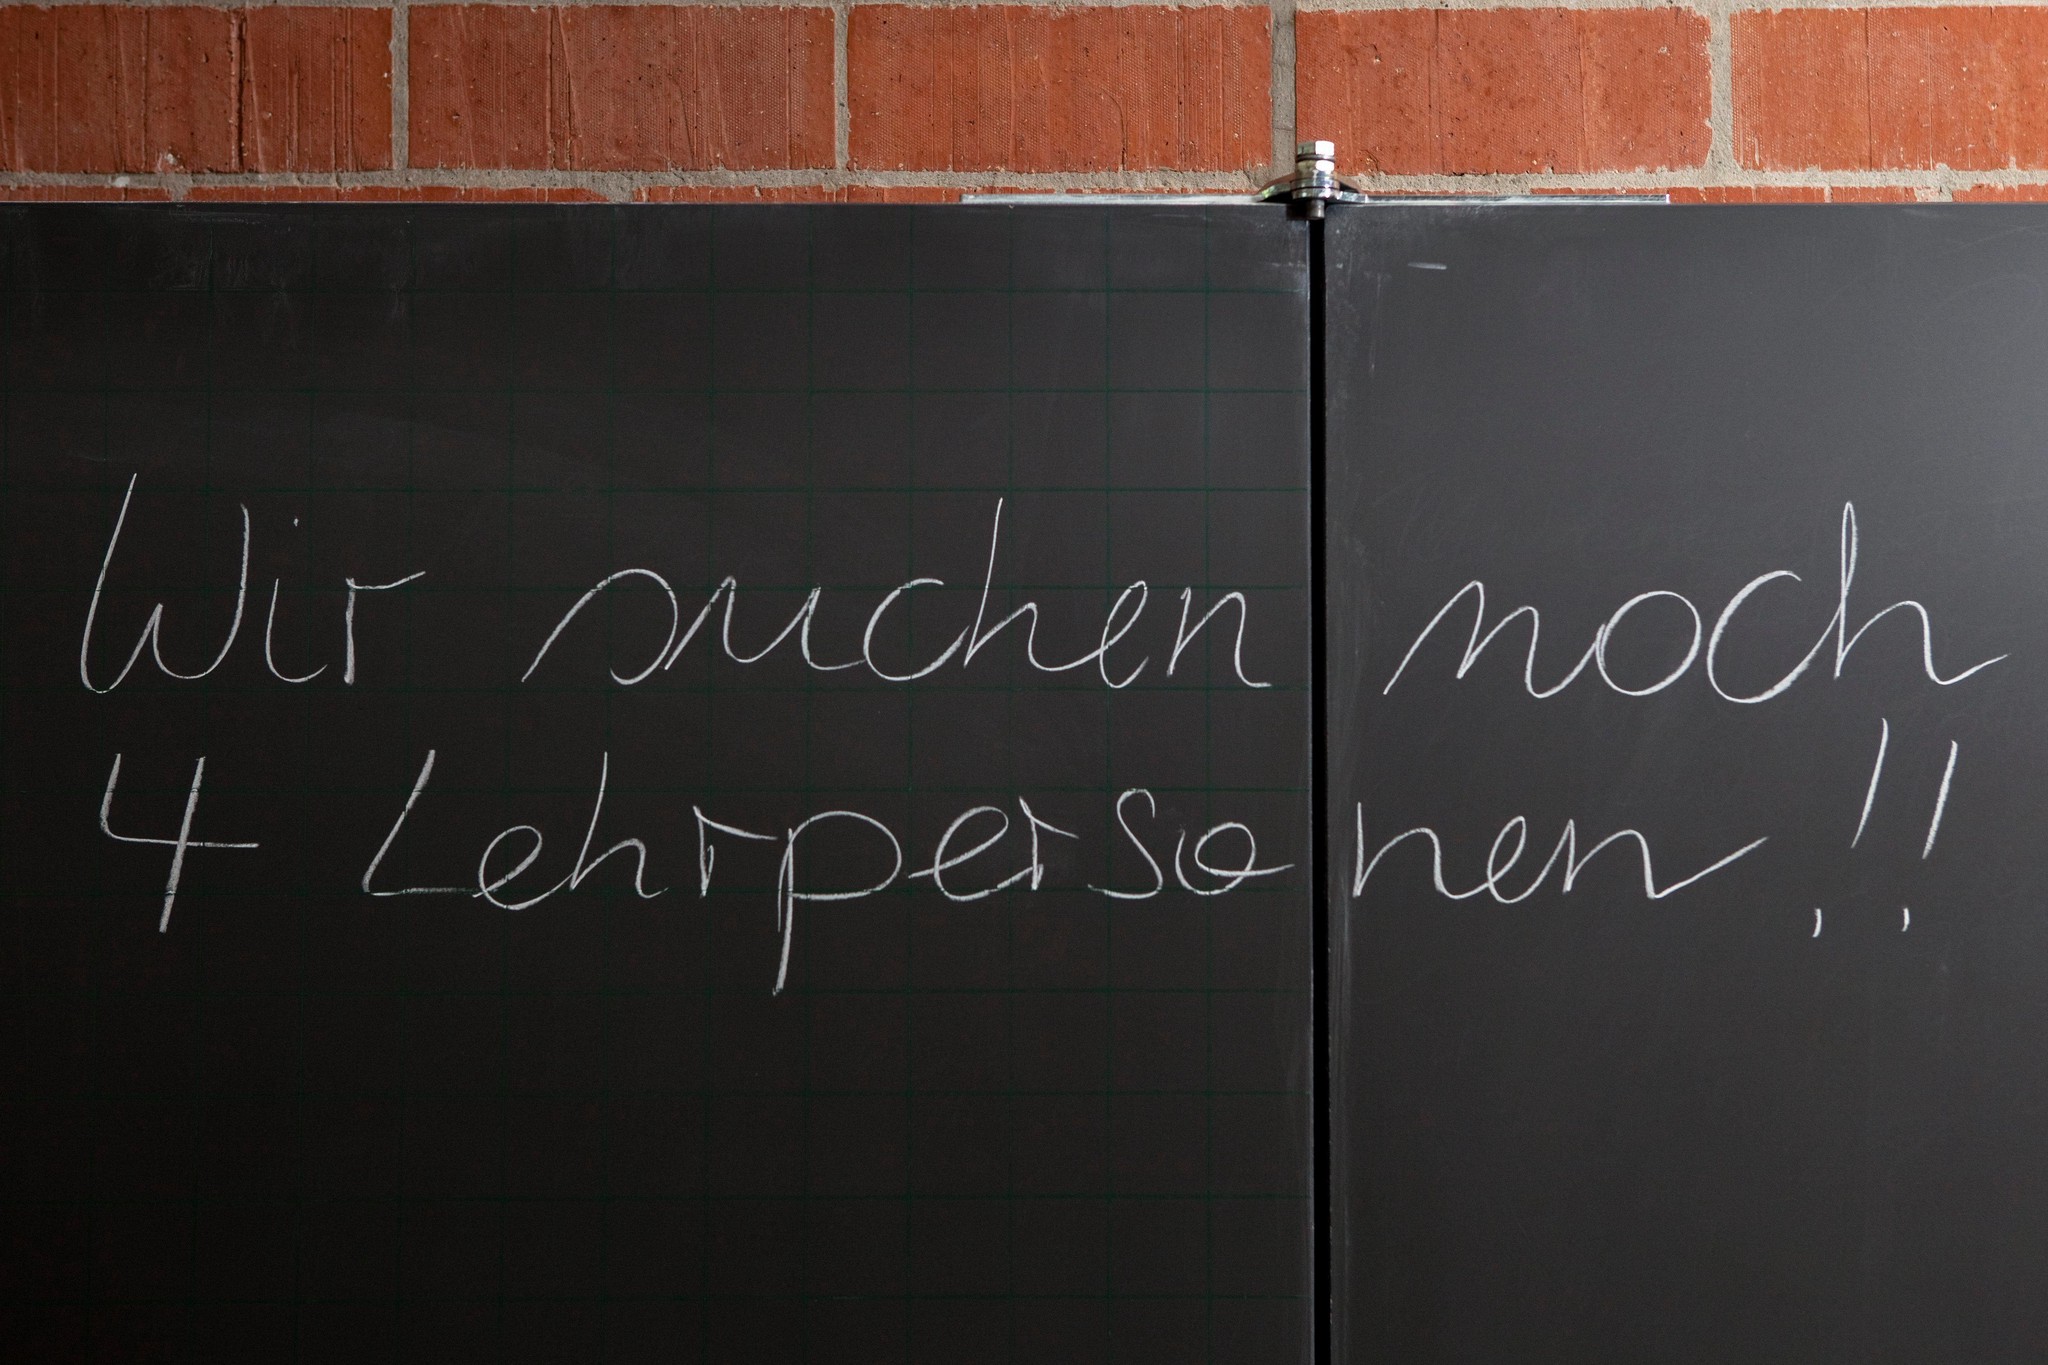 Wir suchen noch
4 Lehrpersonen!!